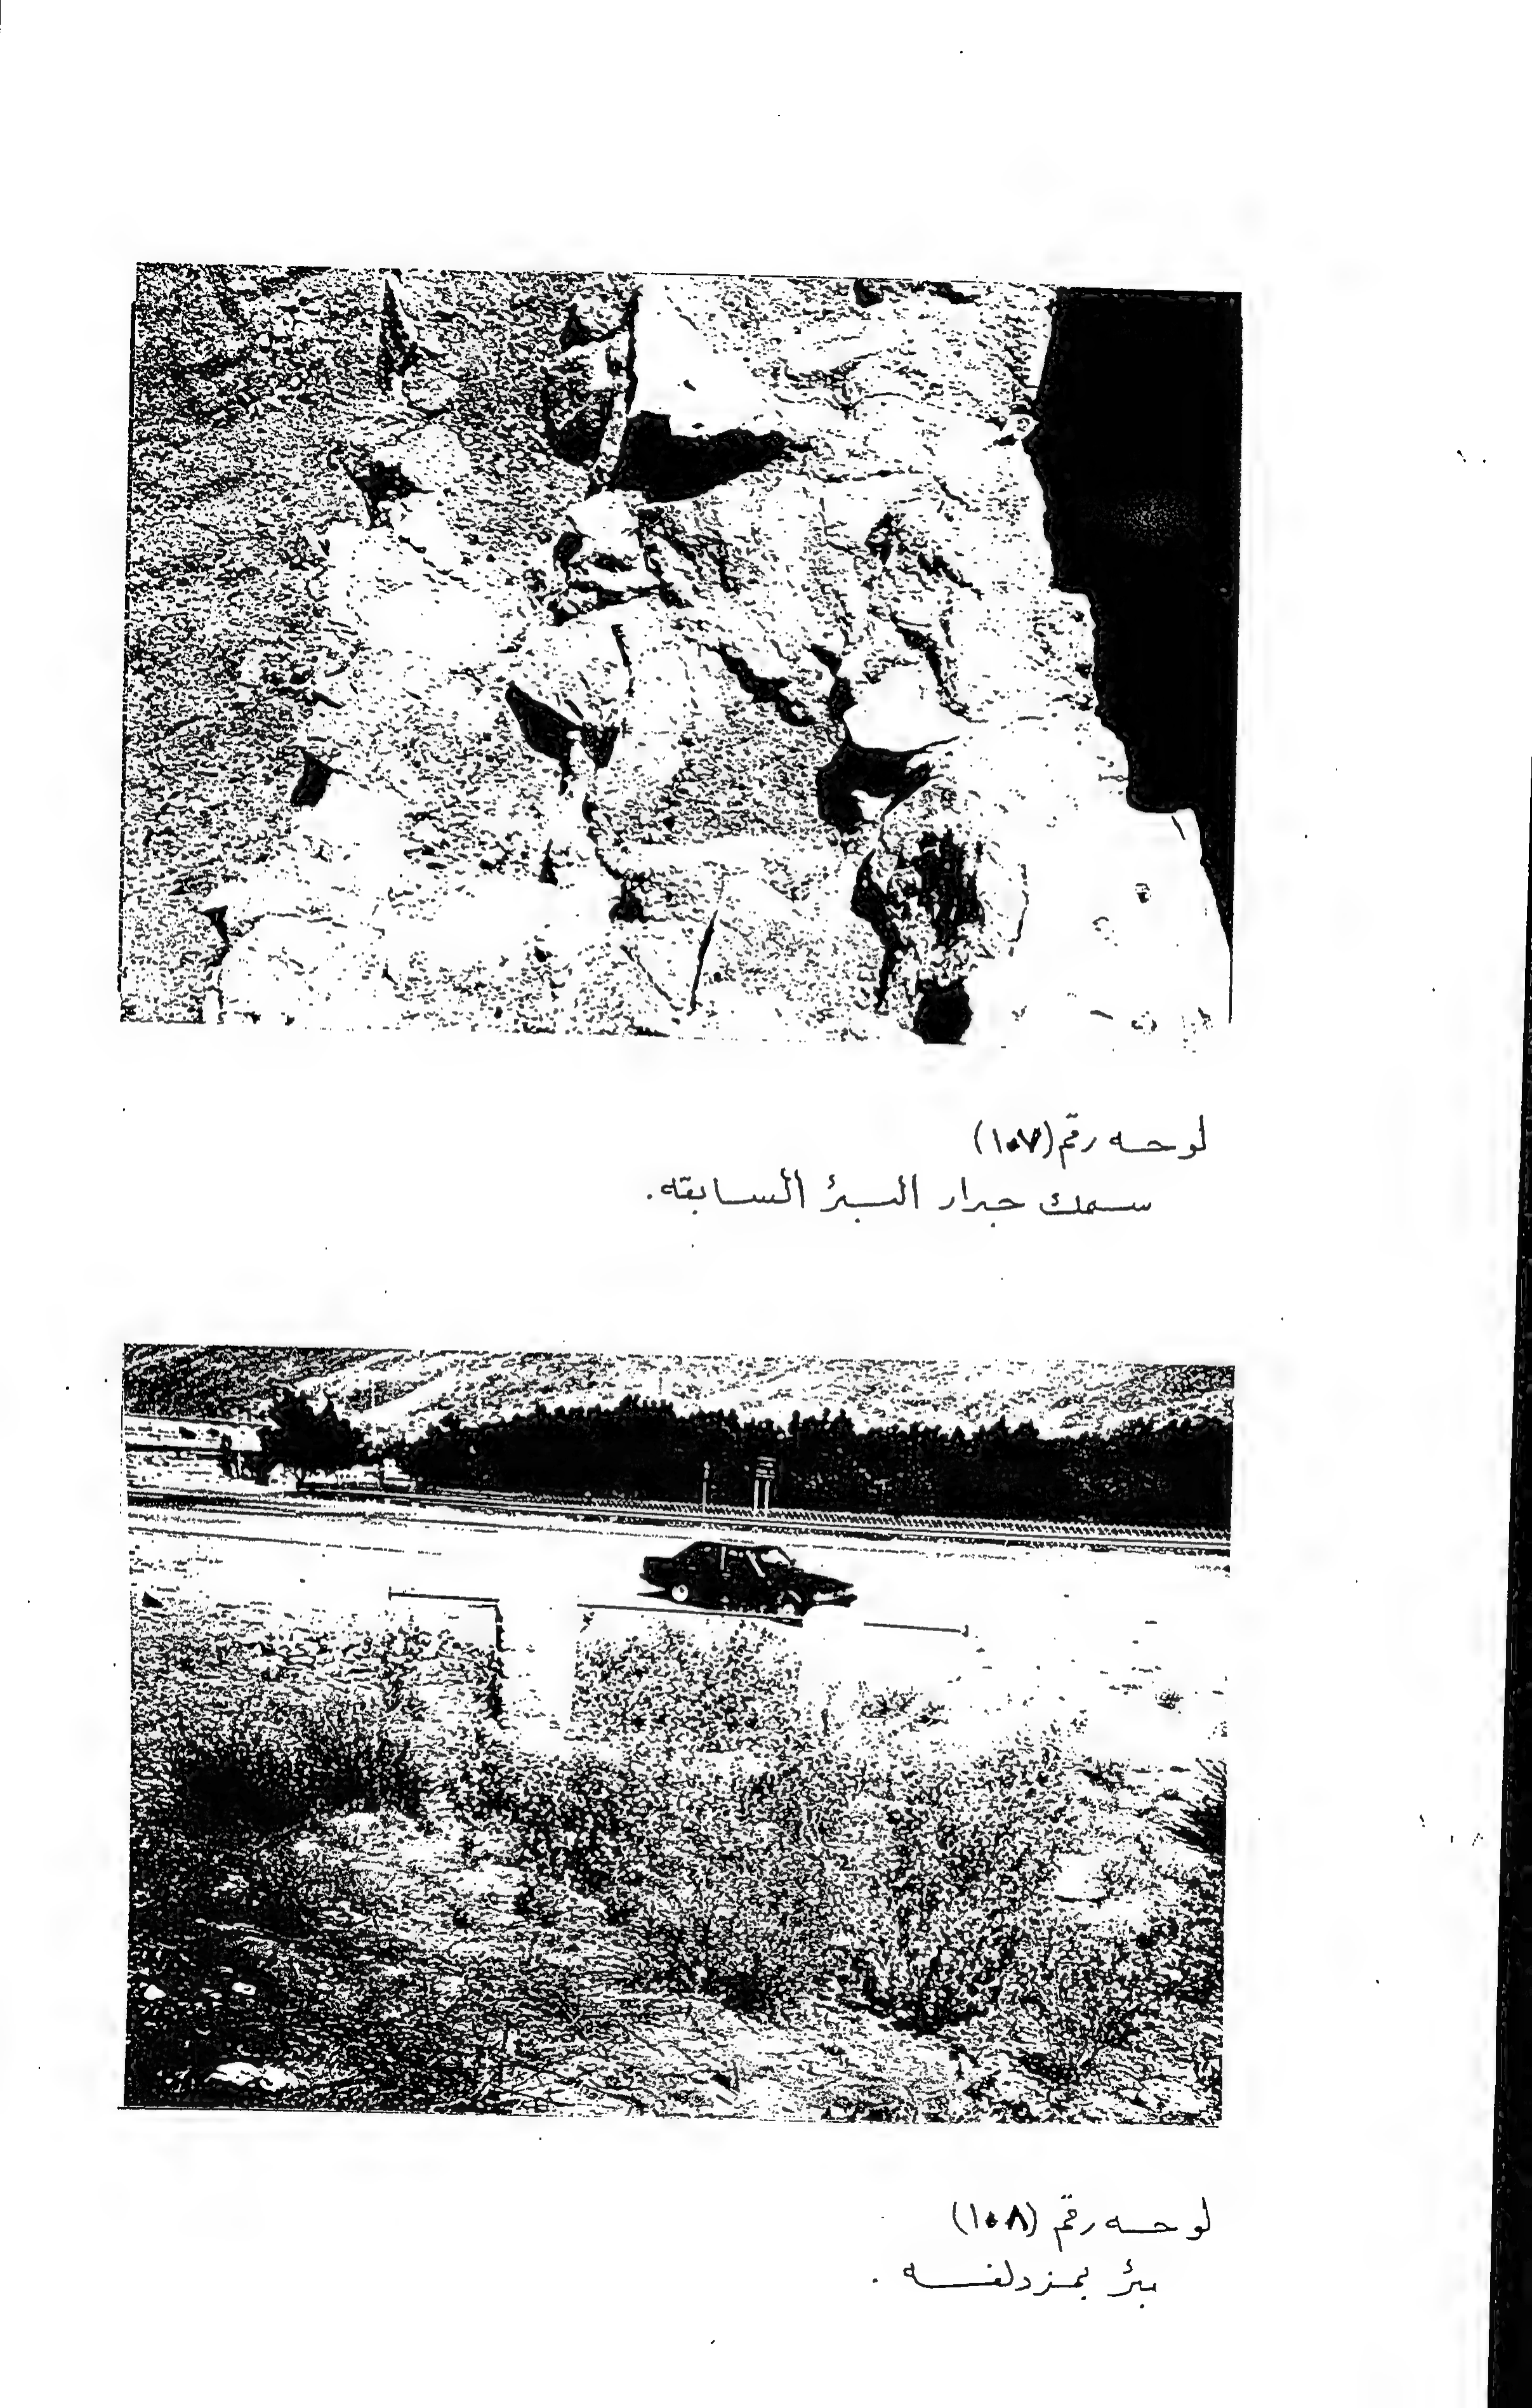 لوحه رقم (١٠٧)
سمك جدار البئر السابقه.
لوحه رقم (١٠٨)
بئر بمزدلفه .